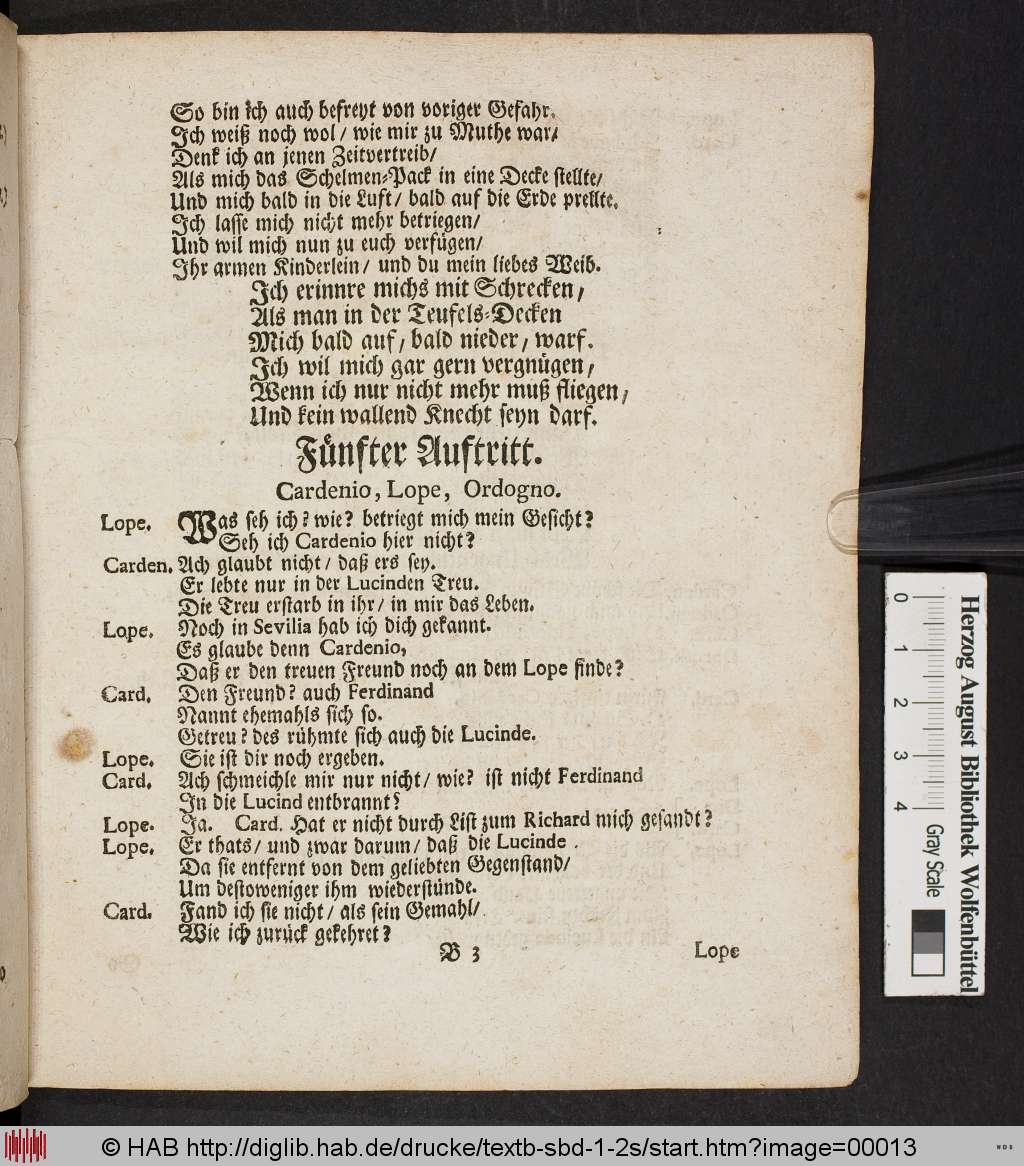 So bin ich auch befreyt von voriger Gefahr.
Ich weiß noch wol / wie mir zu Muthe war/
Denk ich an jenen Zeitvertreib/
Als mich das Schelmen-Pack in eine Decke stellte/
Und mich bald in die Luft / bald auf die Erde prellte.
Ich lasse mich nicht mehr betriegen/
Und wil mich nun zu euch verfügen/
Ihr armen Kinderlein / und du mein liebes Weib.
Ich erinnre michs mit Schrecken /
Als man in der Teufels-Decken
Mich bald auf / bald nieder / warf.
Ich wil mich gar gern vergnügen /
Wenn ich nur nicht mehr muß fliegen /
Und kein wallend Knecht seyn darf.
Fünfter Auftritt.
Cardenio, Lope, Ordogno.
Lope. Was seh ich? wie? betriegt mich mein Gesicht?
Seh ich Cardenio hier nicht?
Carden. Ach glaubt nicht / daß ers sey.
Er lebte nur in der Lucinden Treu.
Die Treu erstarb in ihr / in mir das Leben.
Lope. Noch in Sevilia hab ich dich gekannt.
Es glaube denn Cardenio,
Daß er den treuen Freund noch an dem Lope finde?
Card. Den Freund? auch Ferdinand
Nannt ehemahls sich so.
Getreu? des rühmte sich auch die Lucinde.
Lope. Sie ist dir noch ergeben.
Card. Ach schmeichle mir nur nicht / wie? ist nicht Ferdinand
In die Lucind entbrannt?
Lope. Ja. Card. Hat er nicht durch List zum Richard mich gesandt?
Lope. Er thats / und zwar darum / daß die Lucinde
Da sie entfernt von dem geliebten Gegenstand/
Um destoweniger ihm wiederstünde.
Card. Fand ich sie nicht / als sein Gemahl/
Wie ich zurück gekehret?
B 3 Lope
0 1 2 3 4 Gray Scale
Herzog August Bibliothek Wolfenbüttel
© HAB http://diglib.hab.de/drucke/textb-sbd-1-2s/start.htm?image=00013